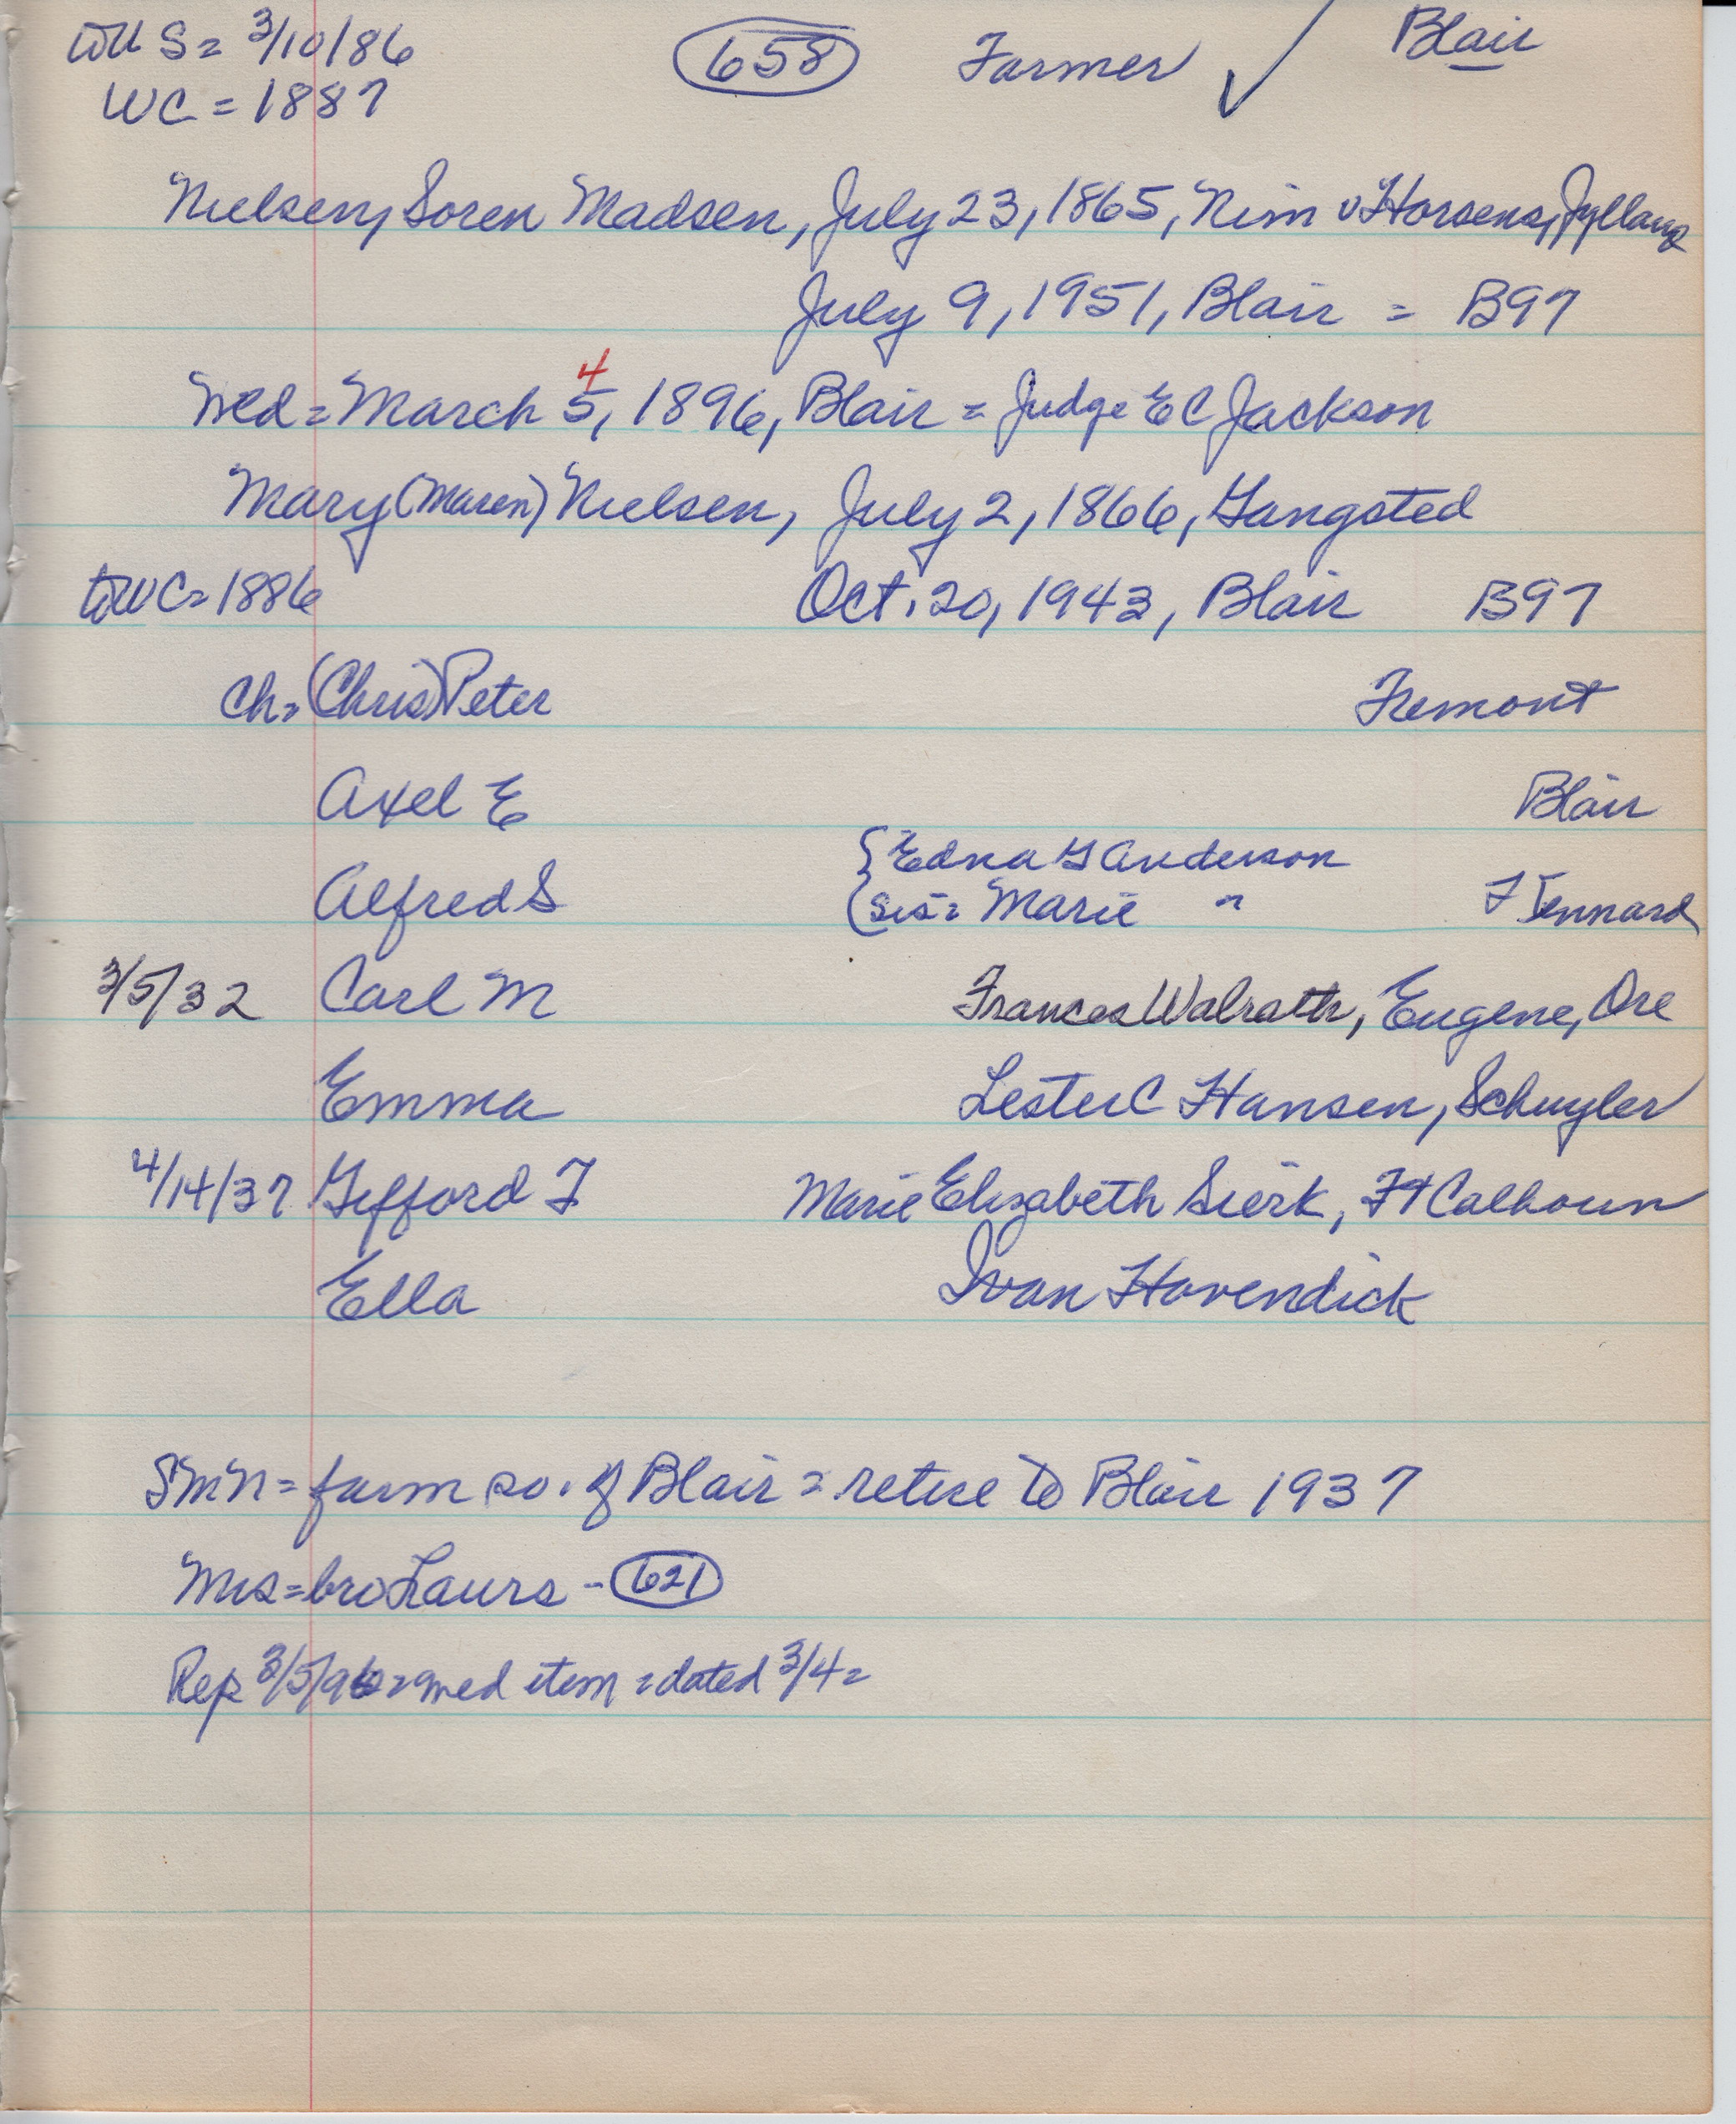 to US = 3/10/86 (658) Farmer ✓ Blair
WC = 1887
Nielsen, Soren Madsen, July 23, 1865, Nim v Horsens, Jylland
July 9, 1951, Blair = B97
4
Wed = March 5, 1896, Blair = Judge E C Jackson
Mary (Maren) Nielsen, July 2, 1866, Gangsted
to WC = 1886 Oct. 20, 1943, Blair B97
Ch = (Chris) Peter Fremont
Axel E Blair
{ Edna G Anderson
Alfred S ( sis = Marie " Kennard
3/5/32 Carl M Frances Walrath, Eugene, Ore
Emma Lester C Hansen, Schuyler
4/14/37 Gifford F Marie Elizabeth Sierk, Ft Calhoun
Ella Ivan Hovendick
SMN = farm so. of Blair = retire to Blair 1937
Mrs = bro Laurs - (621)
Rep 3/5/96 = wed item = dated 3/4 =